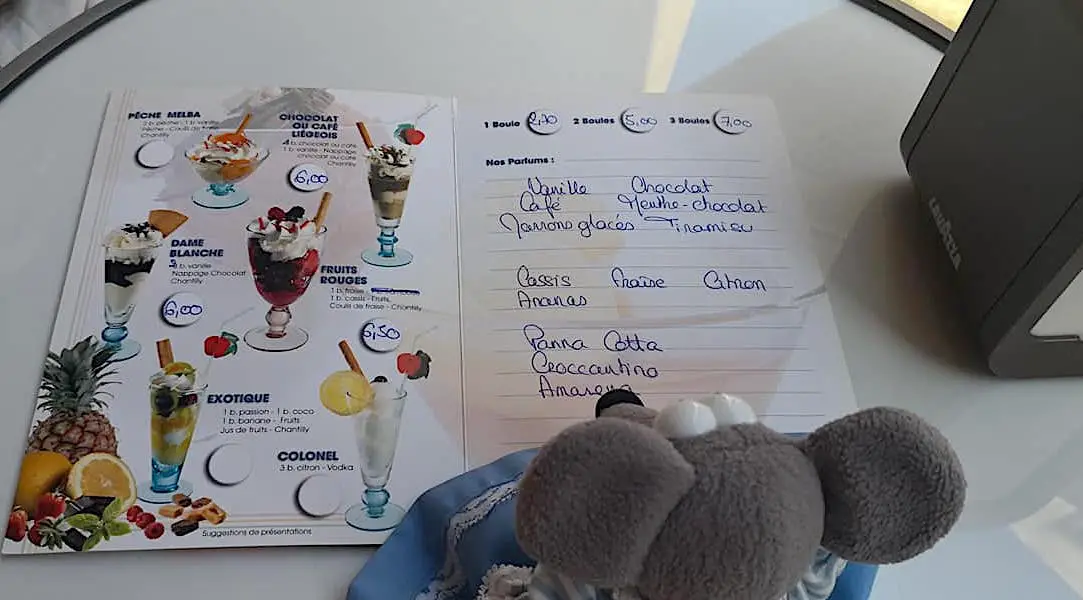 PÊCHE MELBA
2 b. pêche - 1 b. vanille
Pêche - Coulis de fraise
Chantilly
CHOCOLAT
OU CAFÉ
LIÉGEOIS
2 b. chocolat ou café
1 b. vanille - Nappage
chocolat ou café
Chantilly
6,00
DAME
BLANCHE
3 b. vanille
Nappage Chocolat
Chantilly
6,00
FRUITS
ROUGES
1 b. fraise
1 b. cassis - Fruits
Coulis de fraise - Chantilly
6,50
EXOTIQUE
1 b. passion - 1 b. coco
1 b. banane - Fruits
Jus de fruits - Chantilly
COLONEL
3 b. citron - Vodka
Suggestions de présentations
1 Boule 2,70 2 Boules 5,00 3 Boules 7,00
Nos Parfums :
Vanille Chocolat
Café Menthe-chocolat
Marrons glacés Tiramisu
Cassis Fraise Citron
Ananas
Panna Cotta
Croccantino
Amarena
LAVAZZA